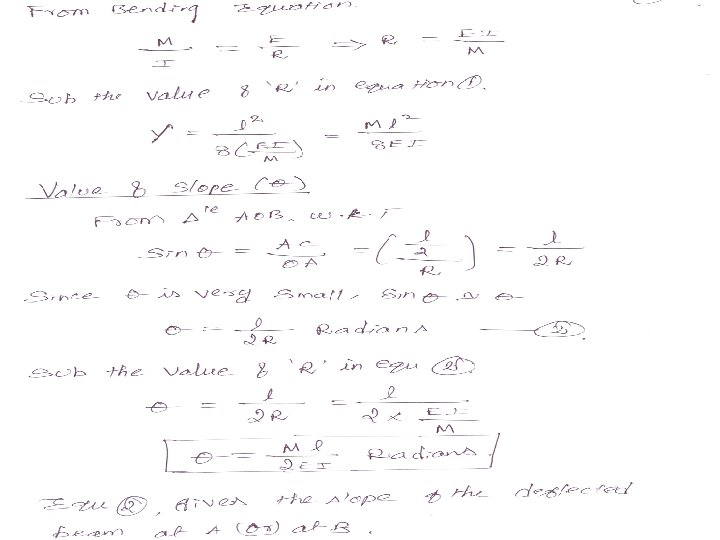 From Bending Equation.
M/I = E/R => R = EI/M
Sub the value of 'R' in equation ①.
Y = l²/8(EI/M) = Ml²/8EI
Value of Slope (θ)
From Δle AOB, w.k.T
Sin θ = AC/OA = (l/2/R) = l/2R
Since θ is very small, Sin θ ≃ θ
θ = l/2R Radians
Sub the value of 'R' in equ
θ = l/2R = l/2 × EI/M
θ = Ml/2EI Radians.
Equ ②, gives the slope of the deflected
beam at A (or) at B.